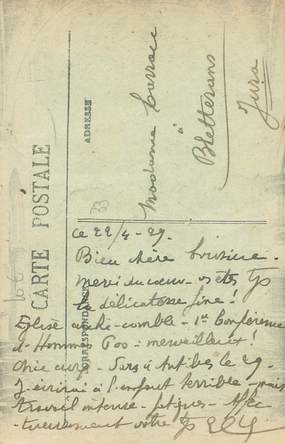 CARTE POSTALE
CORRESPONDANCE
ADRESSE
Madame
à
Bletterans
Jura
ce 22/4-29.
Bien chère cousine.
merci du cœur - vs êtes tjs
la délicatesse fine !
Eglise archi-comble - 1re Conférence
d'Hommes 600 - merveilleux !
Chic curé - Serai à Antibes le 29.
J'écrirai à l'enfant terrible - mais
travail intense - fatigues - Affec-
tueusement votre